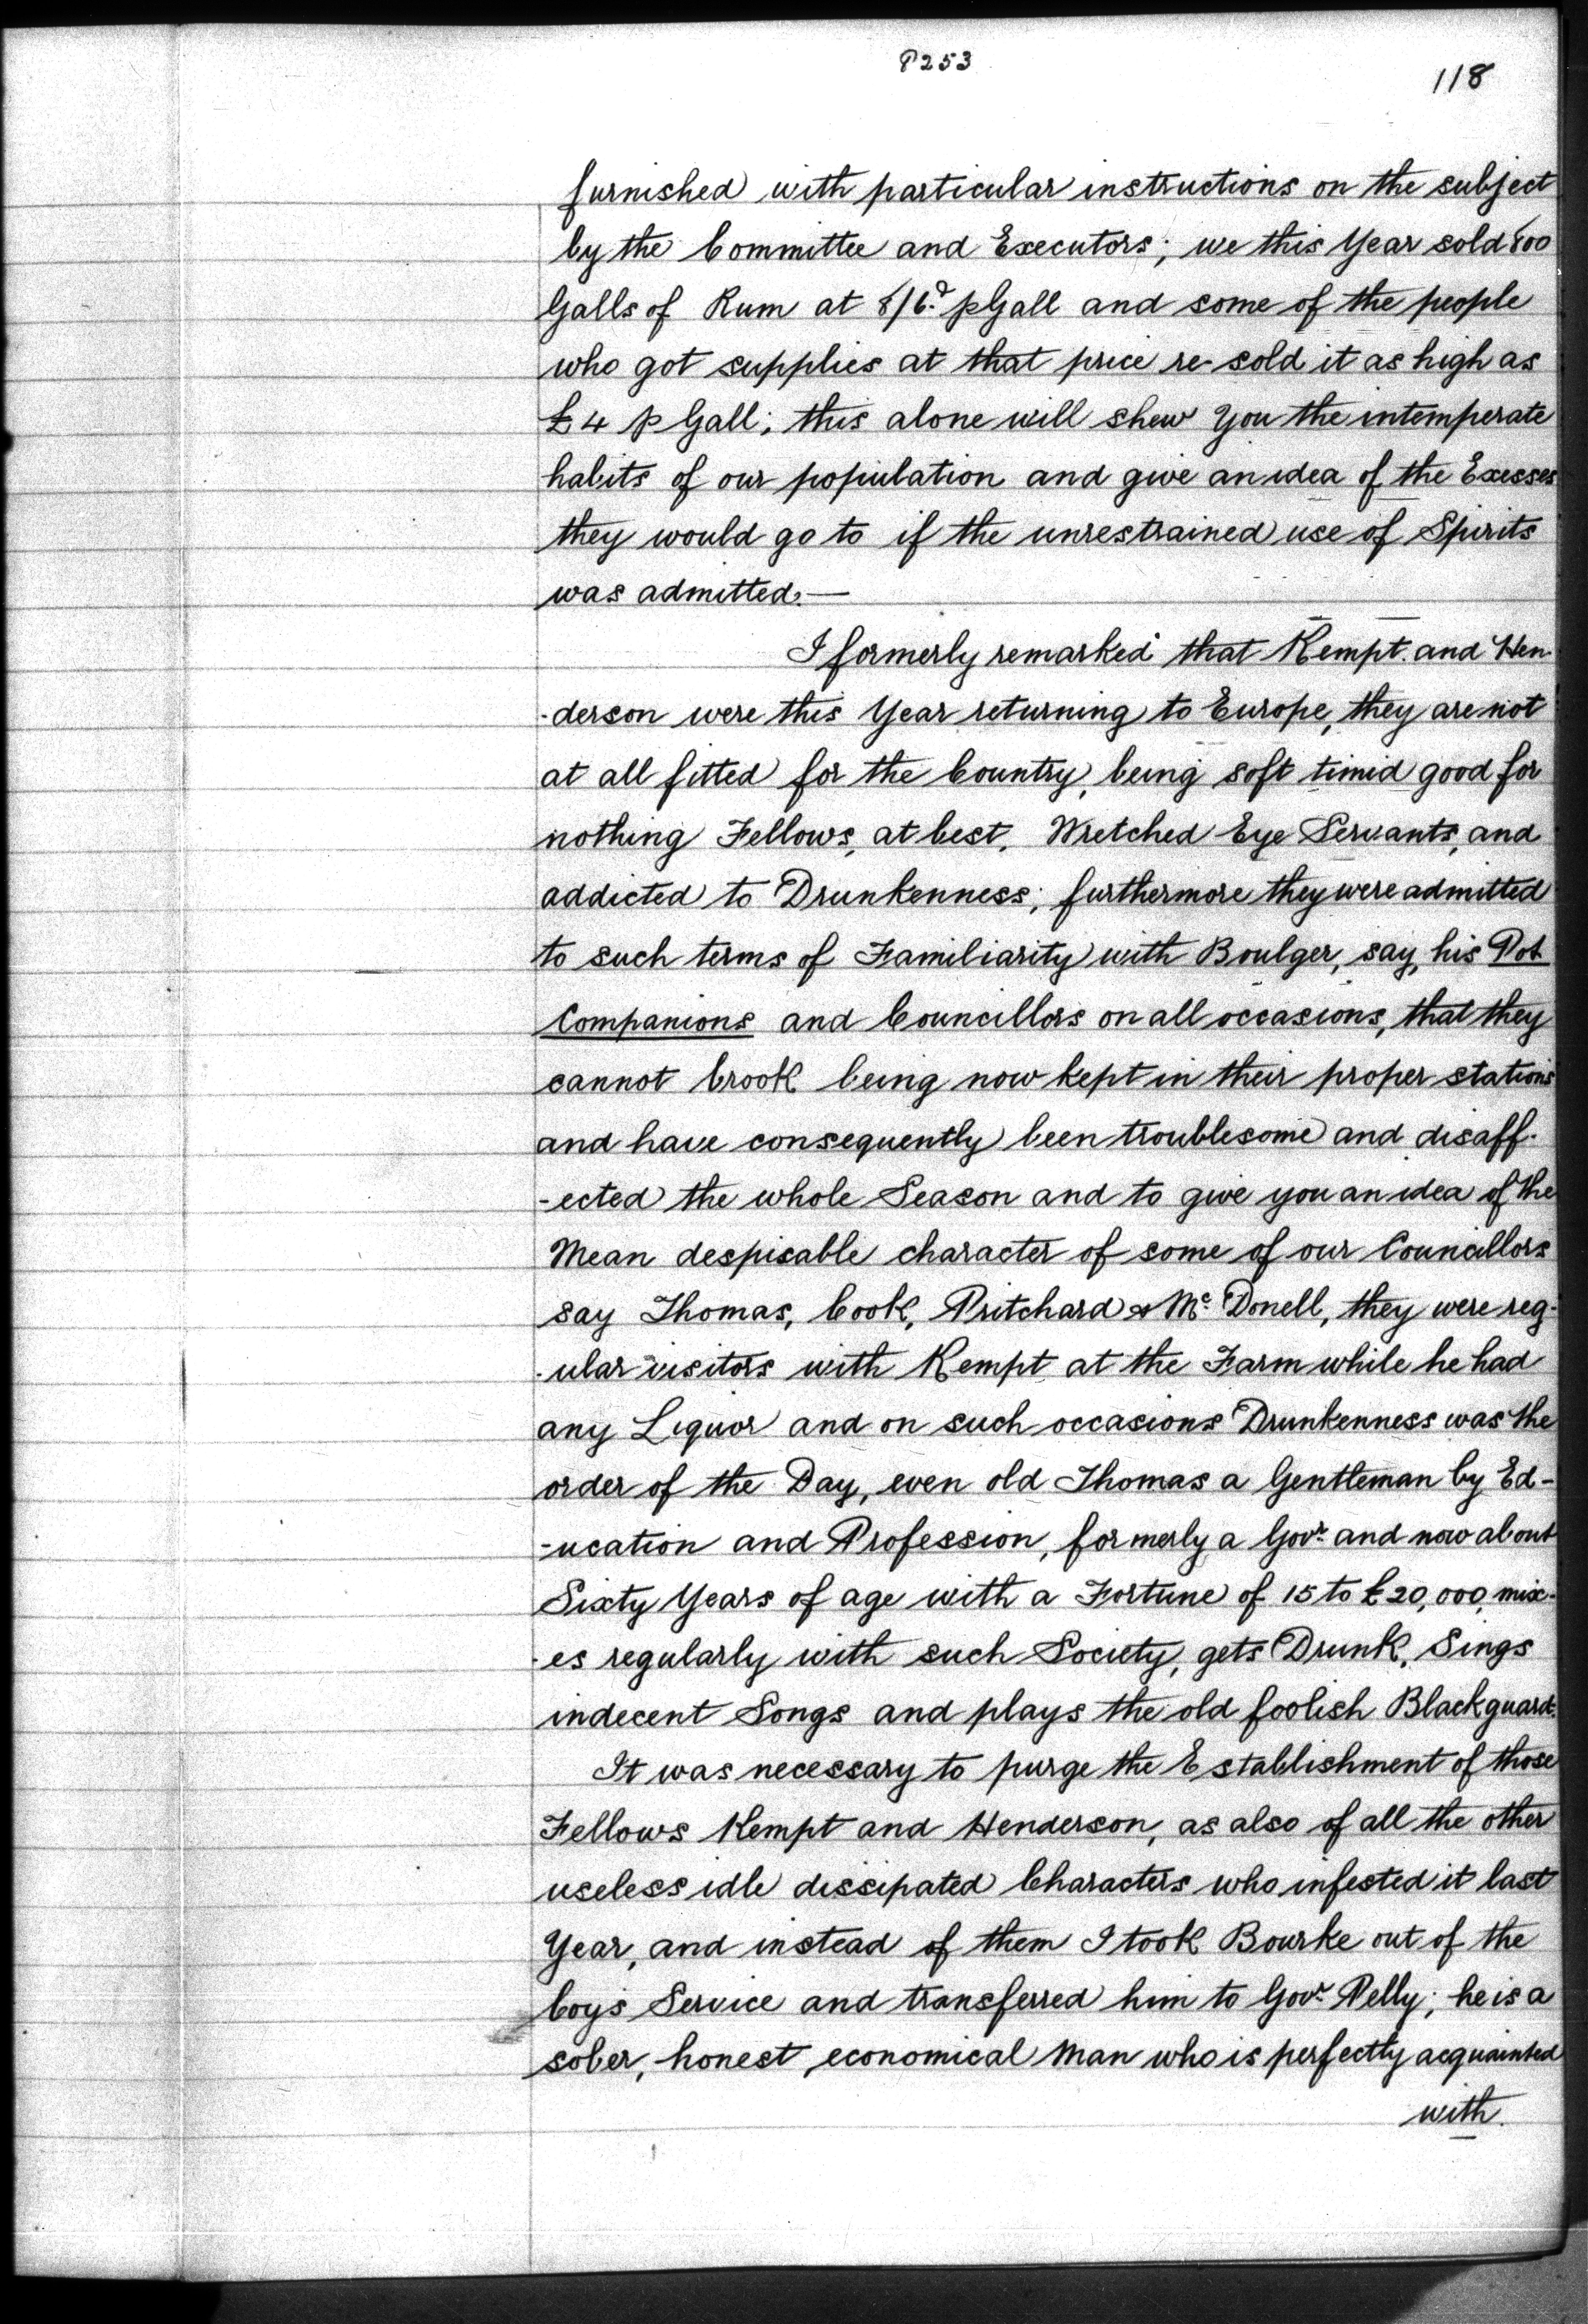 P253
118
furnished with particular instructions on the subject
by the Committee and Executors; we this Year sold 800
Galls of Rum at 8/6d. p Gall and some of the people
who got supplies at that price re-sold it as high as
£4 p Gall; this alone will shew You the intemperate
habits of our population and give an idea of the Exesses
they would go to if the unrestrained use of Spirits
was admitted.—
I formerly remarked that Kempt. and Hen-
-derson were this Year returning to Europe, they are not
at all fitted for the Country, being soft timid good for
nothing Fellows, at best, Wretched Eye Servants, and
addicted to Drunkenness; furthermore they were admitted
to such terms of Familiarity with Boulger, say, his Pot
Companions and Councillors on all occasions, that they
cannot brook being now kept in their proper stations
and have consequently been troublesome and disaff-
-ected the whole Season and to give you an idea of the
Mean despisable character of some of our Councillors
say Thomas, Cook, Pritchard & Mc. Donell, they were reg-
-ular visitors with Kempt at the Farm while he had
any Liquor and on such occasions Drunkenness was the
order of the Day, even old Thomas a Gentleman by Ed-
-ucation and Profession, formerly a Govr. and now about
Sixty Years of age with a Fortune of 15 to £20,000, mix-
-es regularly with such Society, gets Drunk, Sings
indecent Songs and plays the old foolish Blackguard.
It was necessary to purge the Establishment of those
Fellows Kempt and Henderson, as also of all the other
useless idle dissipated Characters who infested it last
Year, and instead of them I took Bourke out of the
Coys Service and transferred him to Govr. Pelly; he is a
sober, honest, economical Man who is perfectly acquainted
with.